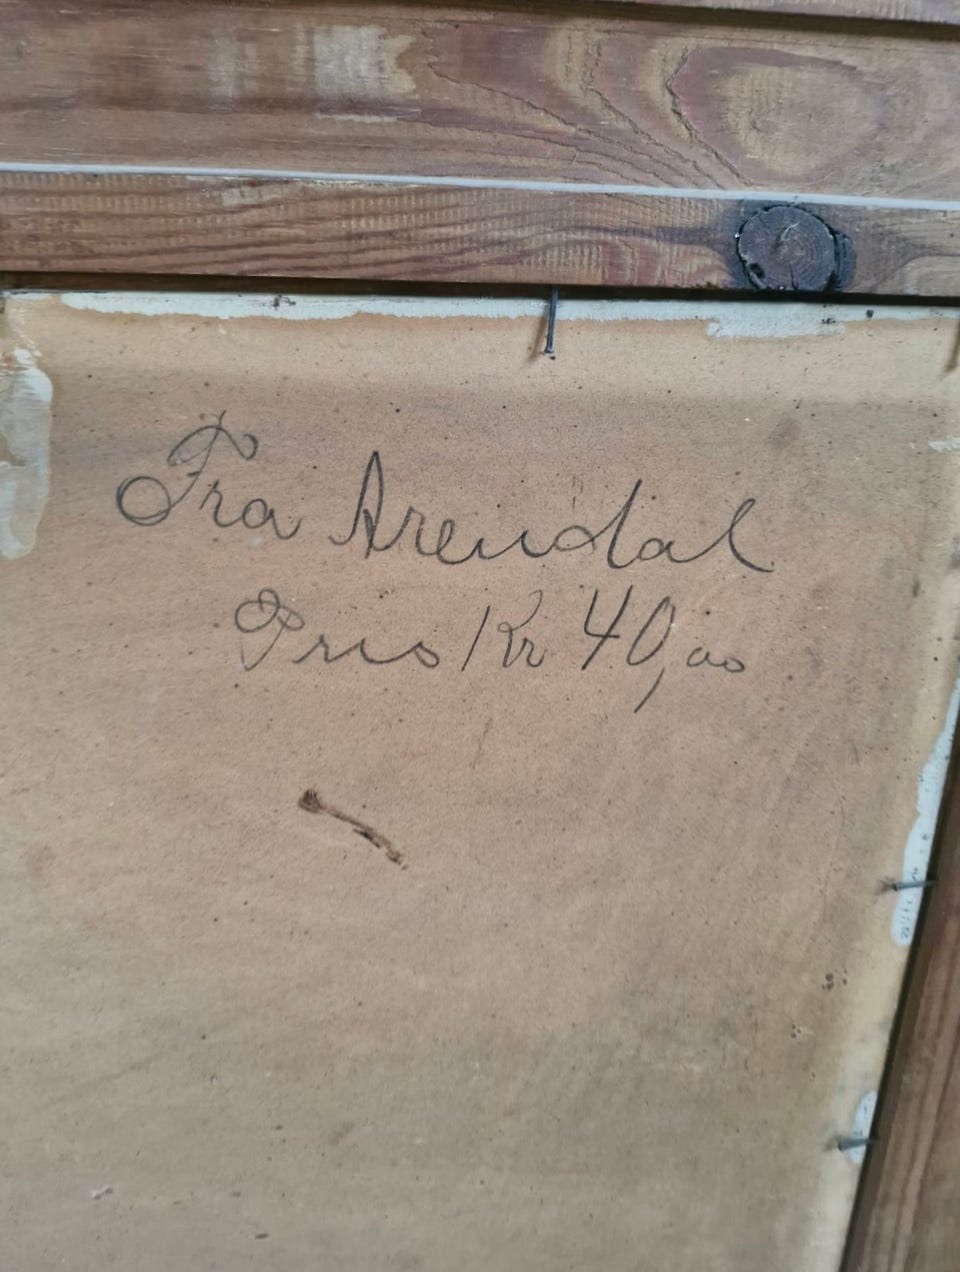 Fra Arendal
Pris Kr 40,00